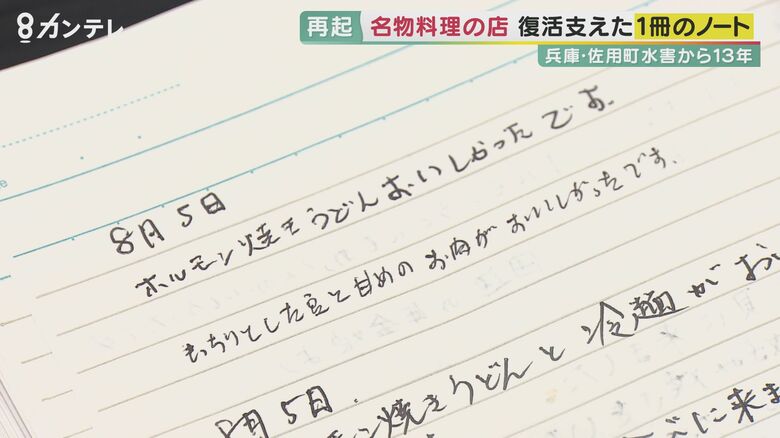 8カンテレ
再起 名物料理の店 復活支えた1冊のノート
兵庫・佐用町水害から13年
8月5日
ホルモン焼きうどんおいしかったです。
もっちりとした豆と甘めのお肉がおいしかったです。
8月5日
モン焼きうどんと冷麺がお
に来ま